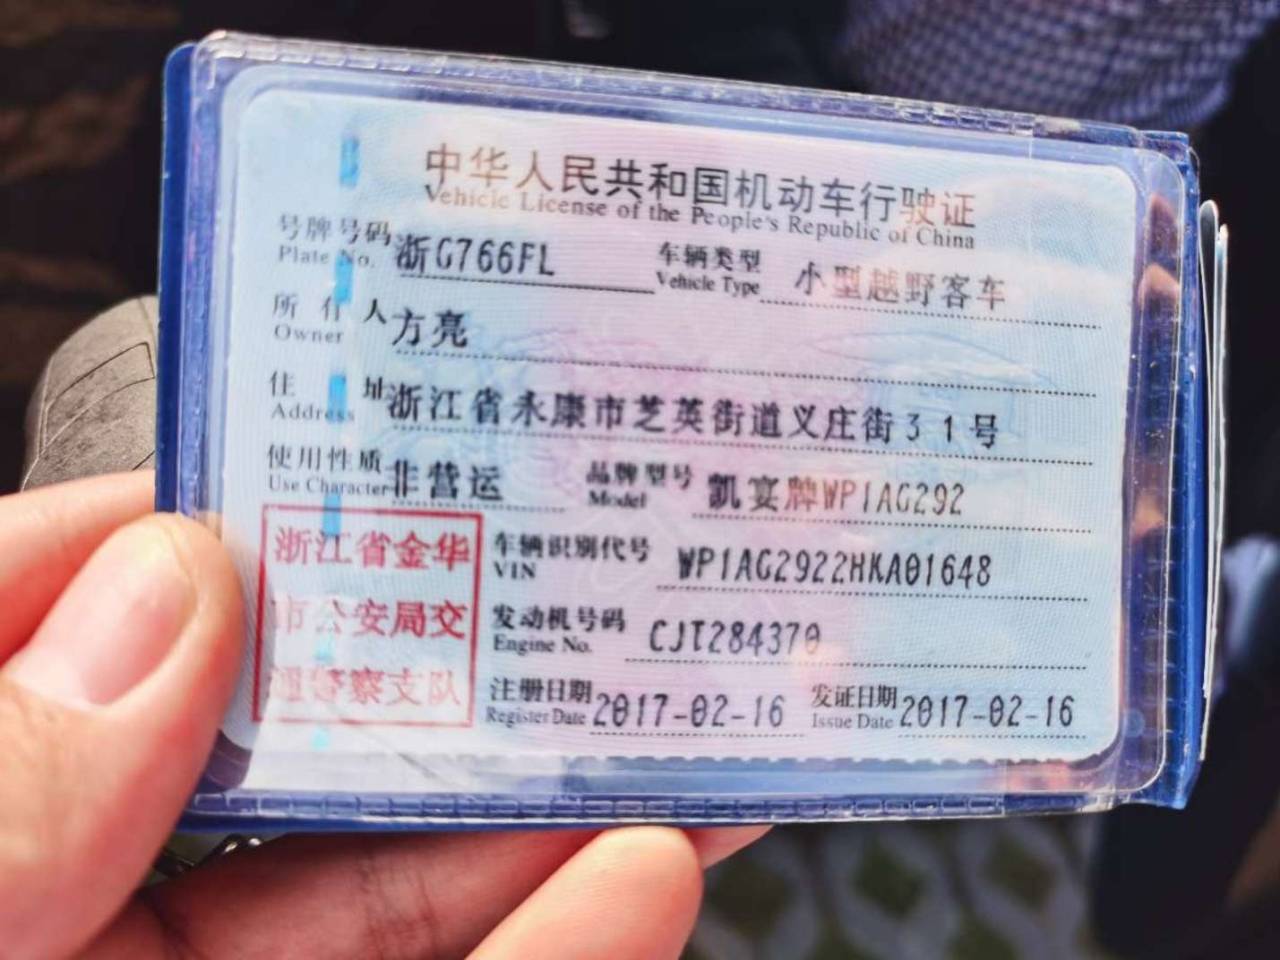 中华人民共和国机动车行驶证
Vehicle License of the People's Republic of China
号牌号码 浙G766FL 车辆类型 小型越野客车
Plate No. Vehicle Type
所有人 方亮
Owner
住址 浙江省永康市芝英街道义庄街31号
Address
使用性质 非营运 品牌型号 凯宴牌WP1AG292
Use Character Model
浙江省金华
市公安局交
通警察支队
车辆识别代号 WP1AG2922HKA01648
VIN
发动机号码 CJT284370
Engine No.
注册日期 2017-02-16 发证日期 2017-02-16
Register Date Issue Date